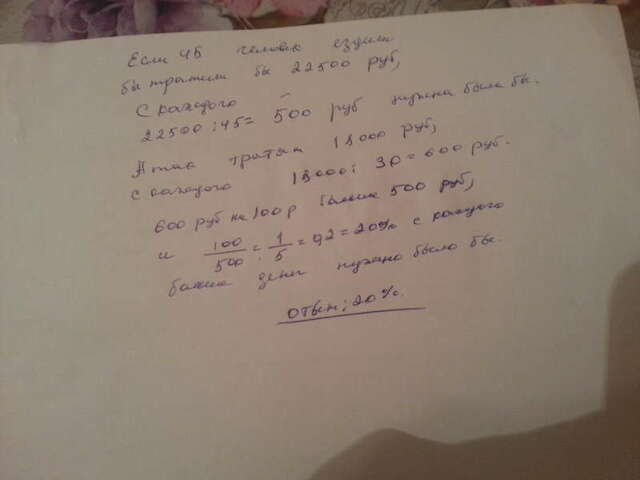 Если 45 человек ездили
бы тратили бы 22500 руб,
с каждого -
22500 : 45 = 500 руб нужна была бы.
А так тратят 18000 руб,
с каждого 18000 : 30 = 600 руб.
600 руб на 100 р больше 500 руб,
и 100/500 = 1/5 = 0,2 = 20% с каждого
больше денег нужно было бы.
Ответ: 20%.